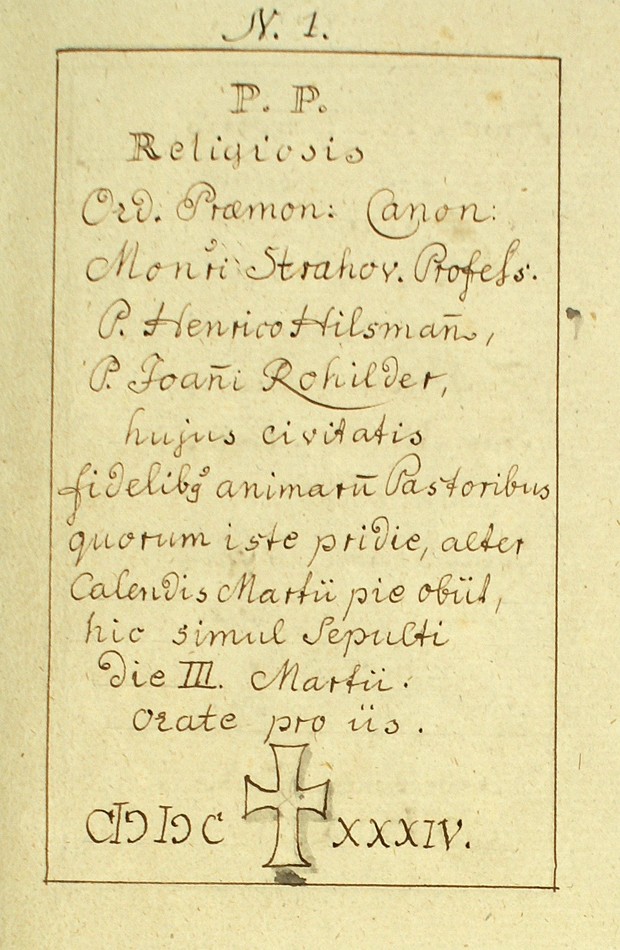 N. 1.
P. P.
Religiosis
Ord. Præmon: Canon:
Monrĩ Strahov. Profeſs.
P. Henrico Hilsmañ,
P. Joañi Rohilder,
hujus civitatis
fidelibq̃ animarũ Pastoribus
quorum iste pridie, alter
Calendis Martii pie obiit,
hic simul Sepulti
die III. Martii.
Orate pro iis.
CIↃ IↃC XXXIV.